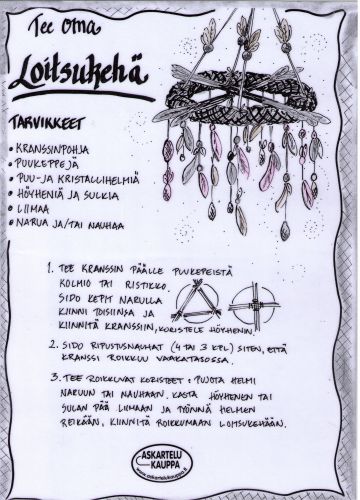 Tee oma
Loitsukehä
TARVIKKEET
• KRANSSINPOHJA
• PUUKEPPEJÄ
• PUU- JA KRISTALLIHELMIÄ
• HÖYHENIÄ JA SULKIA
• LIIMAA
• NARUA JA/TAI NAUHAA
1. TEE KRANSSIN PÄÄLLE PUUKEPEISTÄ
KOLMIO TAI RISTIKKO.
SIDO KEPIT NARULLA
KIINNI TOISIINSA JA
KIINNITÄ KRANSSIIN, KORISTELE HÖYHENIN.
2. SIDO RIPUSTUSNAUHAT (4 TAI 3 KPL) SITEN, ETTÄ
KRANSSI ROIKKUU VAAKATASOSSA.
3. TEE ROIKKUVAT KORISTEET: PUJOTA HELMI
NARUUN TAI NAUHAAN. KASTA HÖYHENEN TAI
SULAN PÄÄ LIIMAAN JA TYÖNNÄ HELMEN
REIKÄÄN. KIINNITÄ ROIKKUMAAN LOITSUKEHÄÄN.
ASKARTELU
KAUPPA
www.askartelukauppa.fi